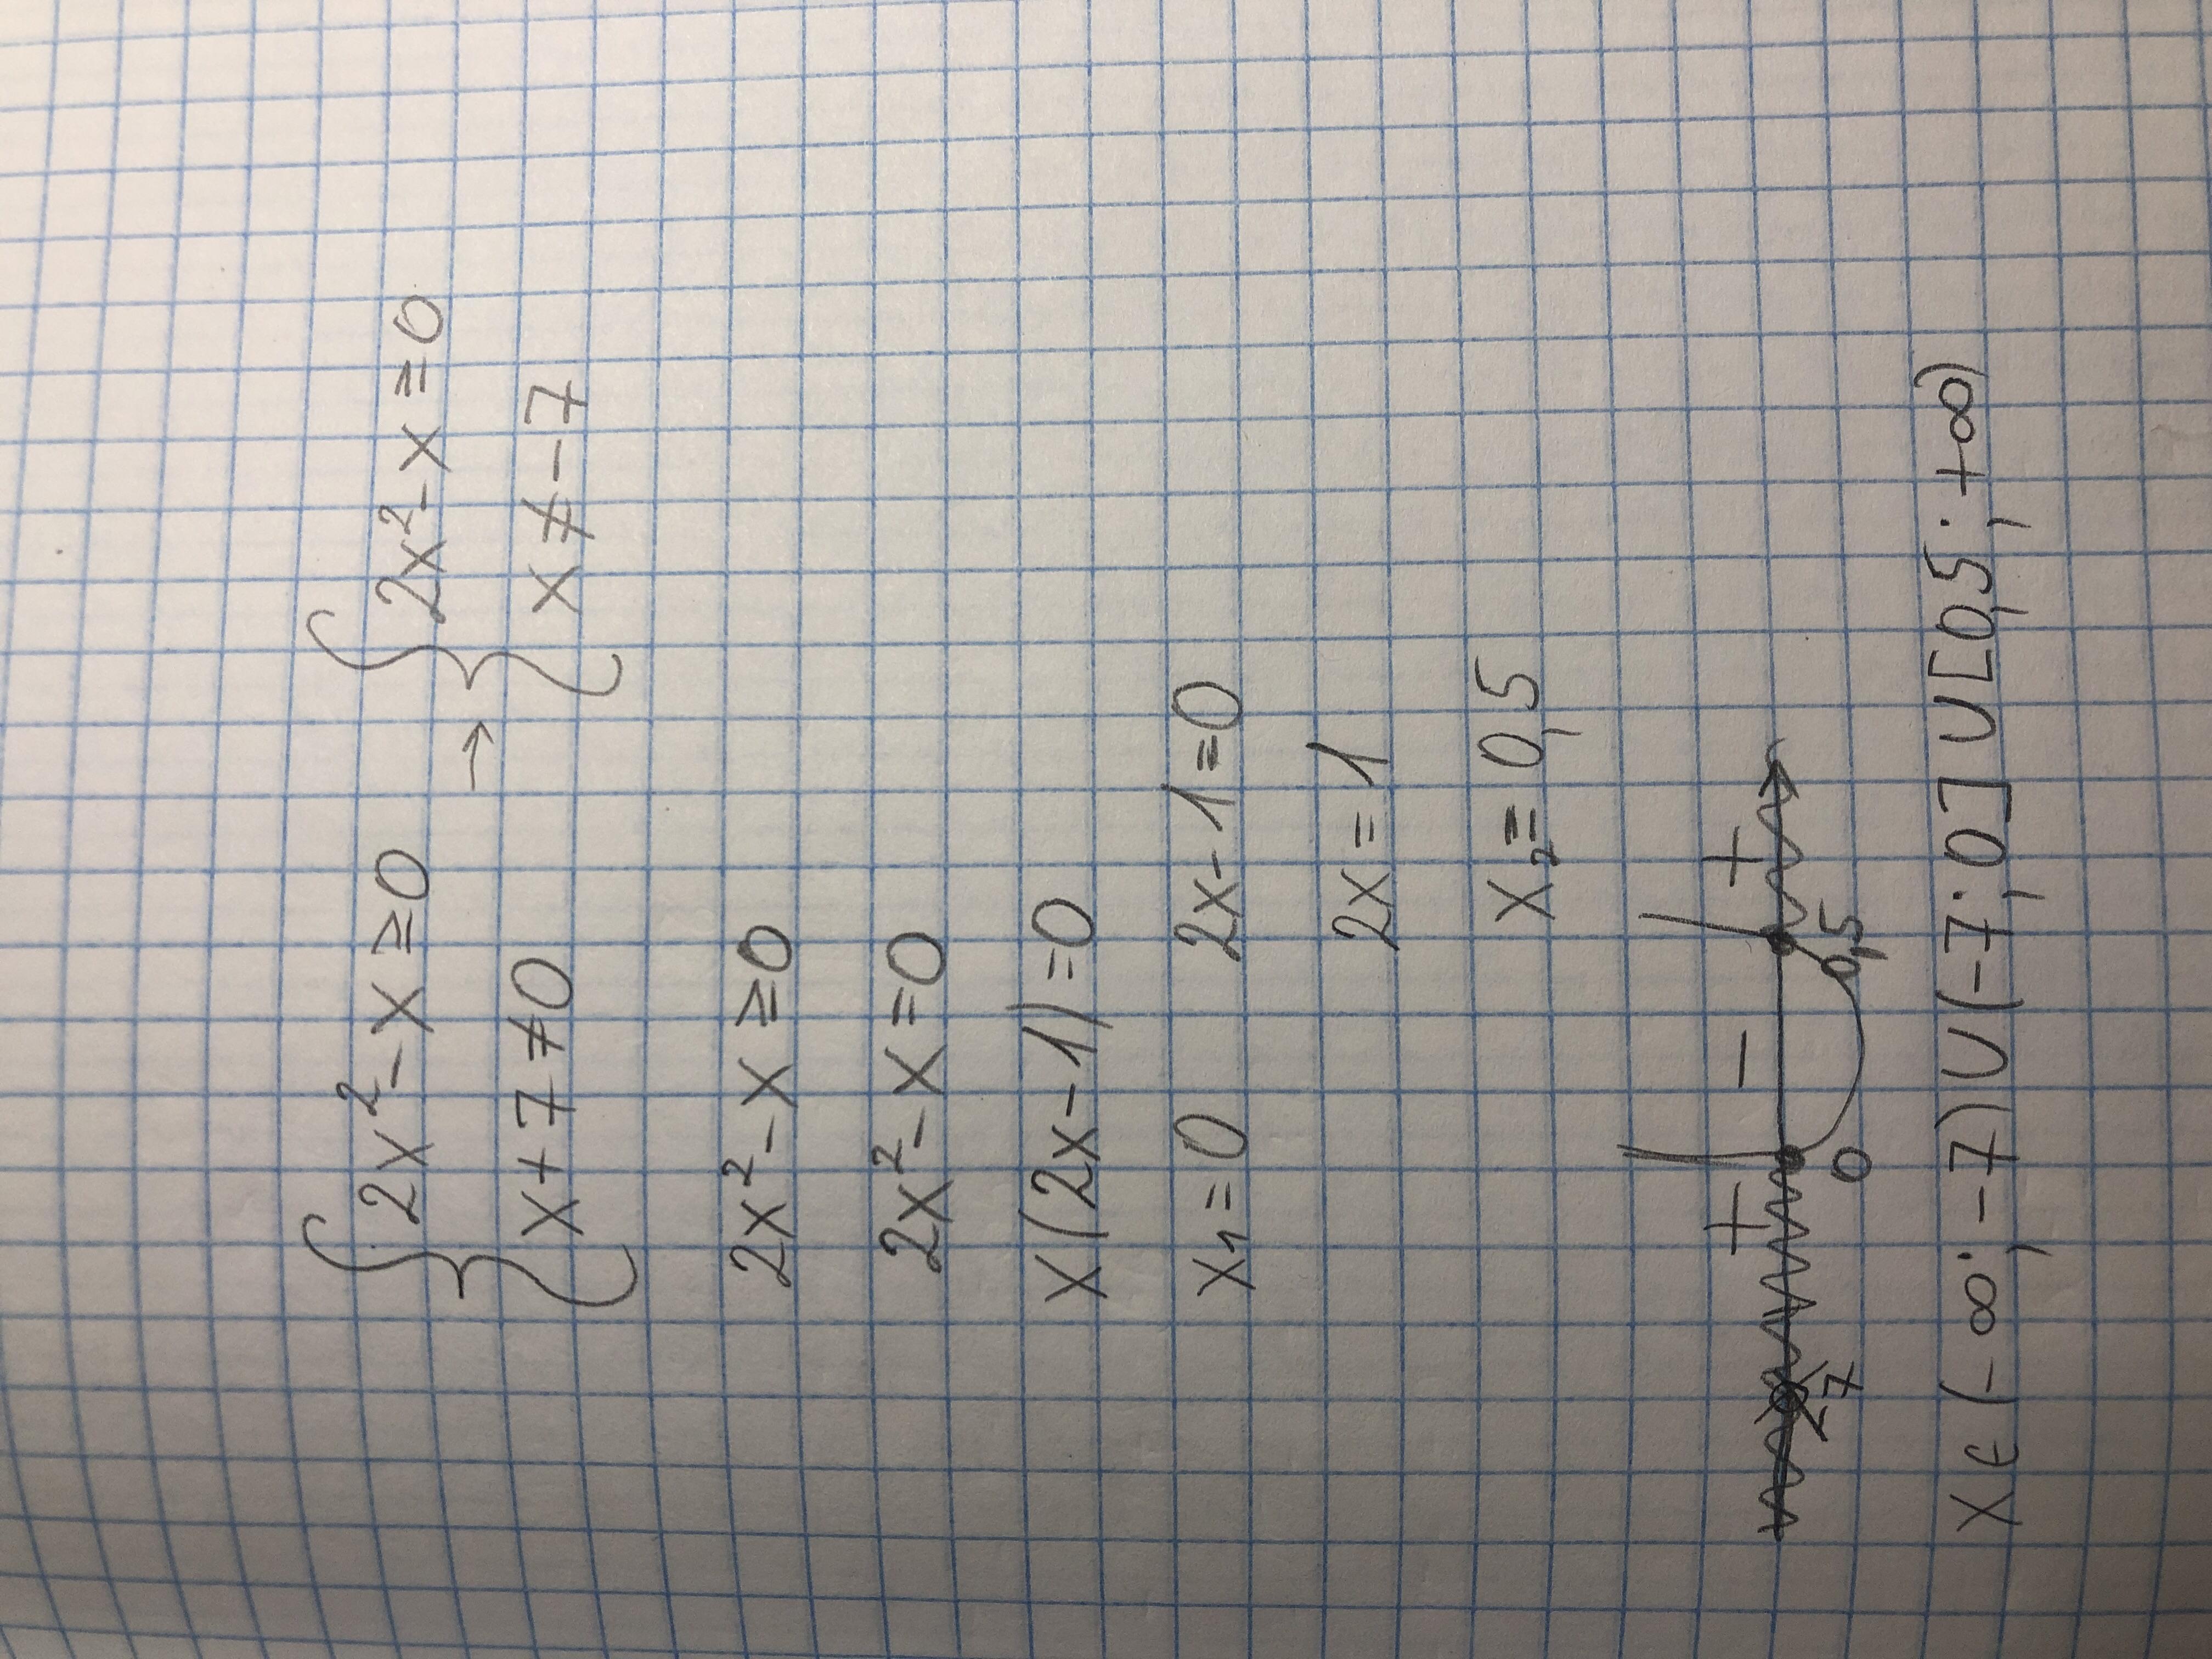 { 2x² - x ≥ 0 → { 2x² - x ≥ 0
{ x + 7 ≠ 0 { x ≠ -7
2x² - x ≥ 0
2x² - x = 0
x(2x - 1) = 0
x₁ = 0 2x - 1 = 0
2x = 1
x₂ = 0,5
+ - +
-7 0 0,5
x ∈ (-∞; -7) ∪ (-7; 0] ∪ [0,5; +∞)